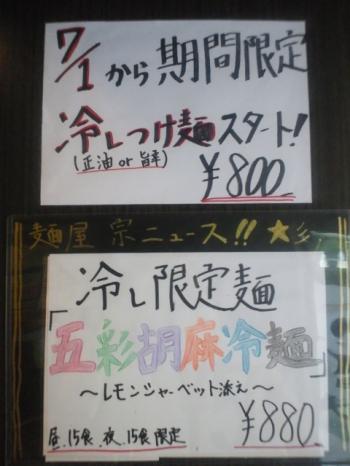 7/1から期間限定
冷しつけ麺スタート!
(正油or旨辛)
¥800
麺屋 宗ニュース!!★
冷し限定麺
「五彩胡麻冷麺」
〜レモンシャーベット添え〜
¥880
昼.15食 夜.15食 限定